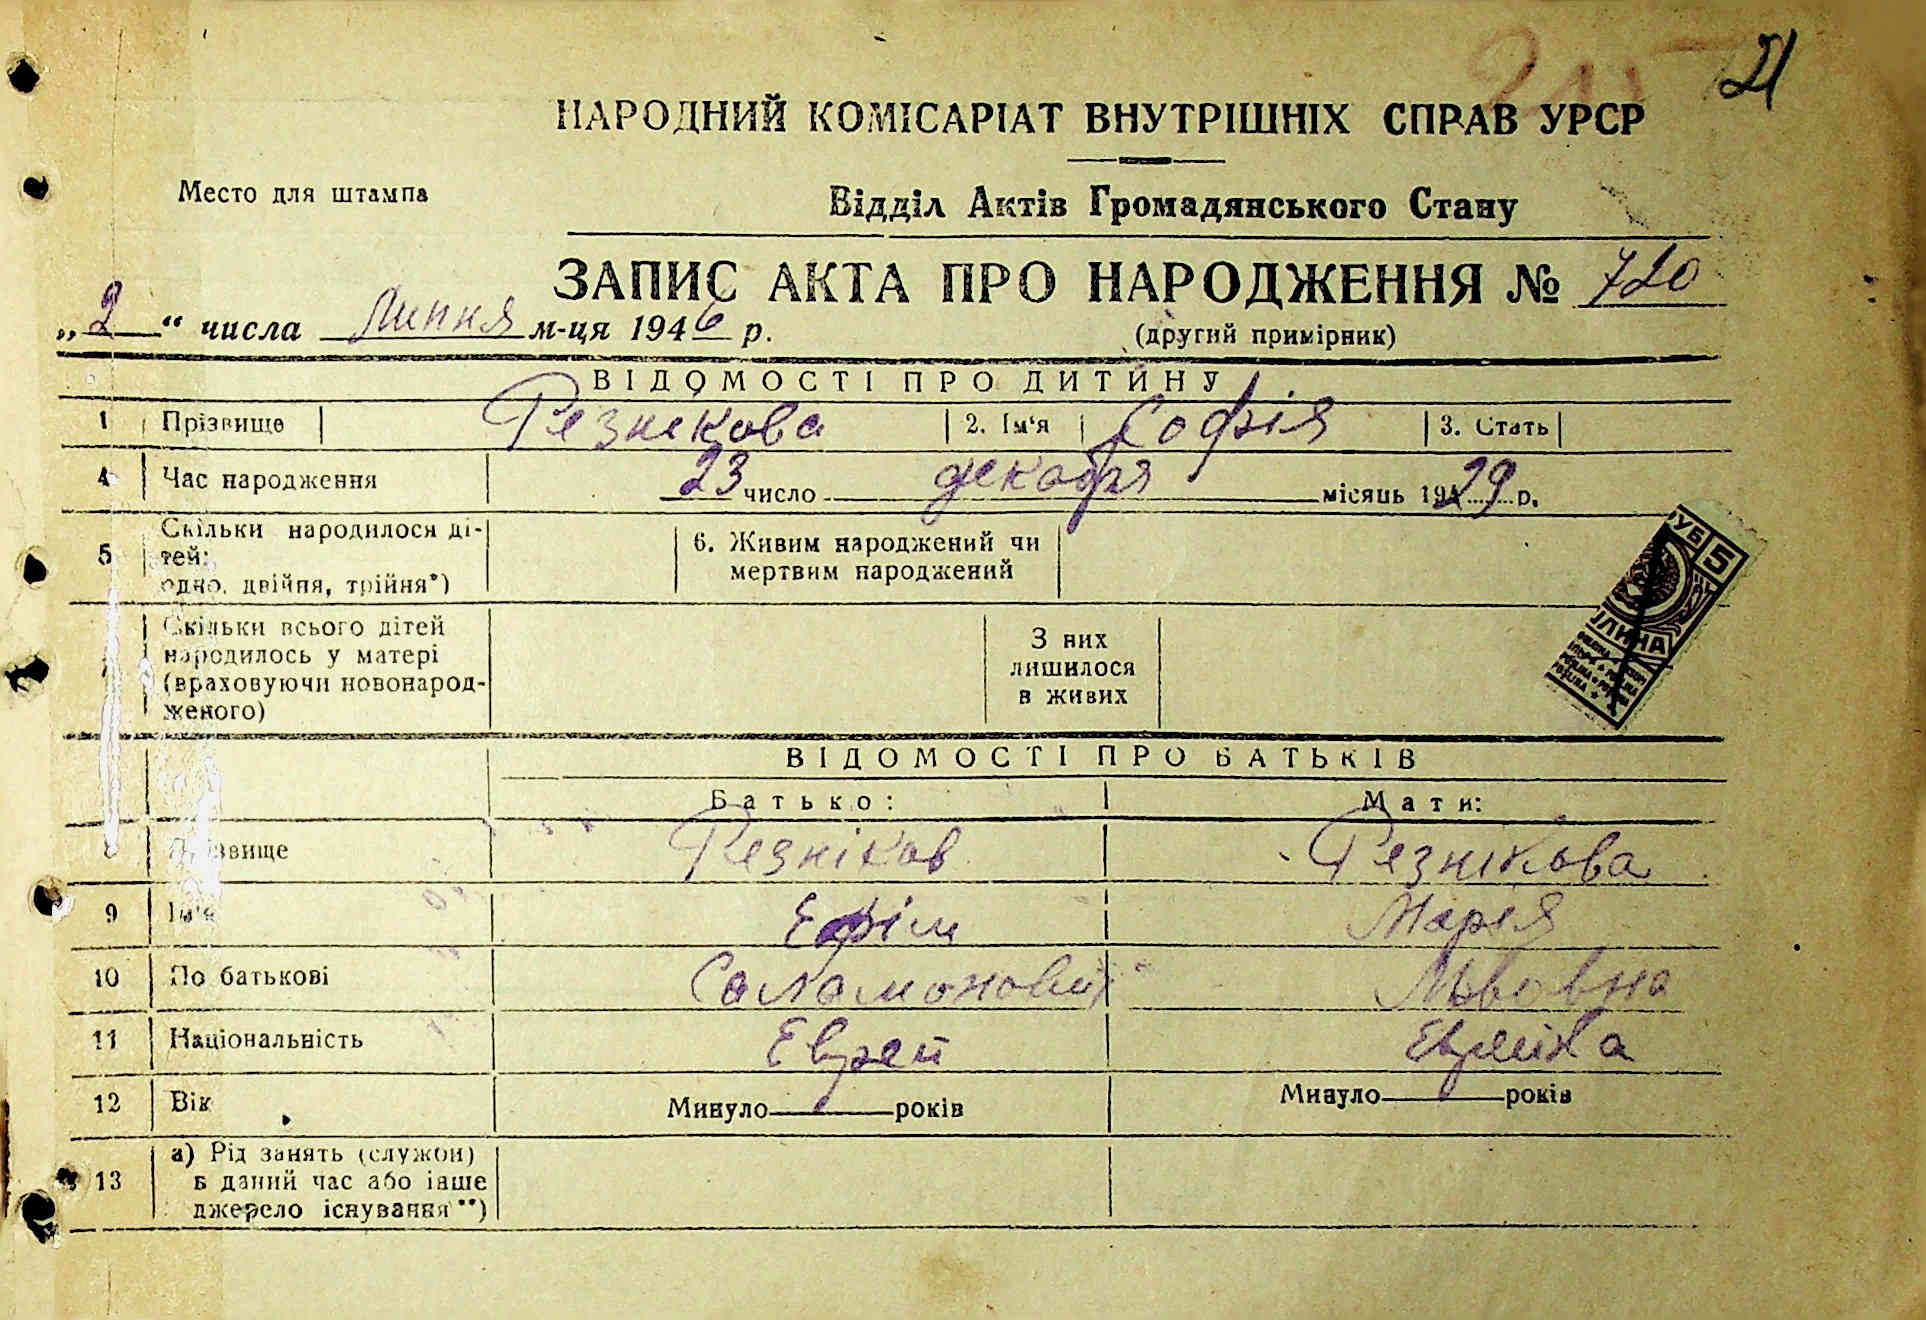 21
НАРОДНИЙ КОМІСАРІАТ ВНУТРІШНІХ СПРАВ УРСР
Место для штампа
Відділ Актів Громадянського Стану
ЗАПИС АКТА ПРО НАРОДЖЕННЯ № 720
„2“ числа Липня м-ця 1946 р.
(другий примірник)
ВІДОМОСТІ ПРО ДИТИНУ
1 Прізвище Резнікова 2. Ім'я Софія 3. Стать
4 Час народження 23 число декабря місяць 1929 р.
5 Скільки народилося ді-
тей:
одно, двійня, трійня*)
6. Живим народжений чи
мертвим народжений
Скільки всього дітей
народилось у матері
(враховуючи новонарод-
женого)
З них
лишилося
в живих
5
ВІДОМОСТІ ПРО БАТЬКІВ
Батько: Мати:
8 Прізвище Резніков Резнікова
9 Ім'я Ефім Марія
10 По батькові Соломонович Львовна
11 Національність Еврей Еврейка
12 Вік Минуло років Минуло років
13 а) Рід занять (служби)
в даний час або інше
джерело існування**)